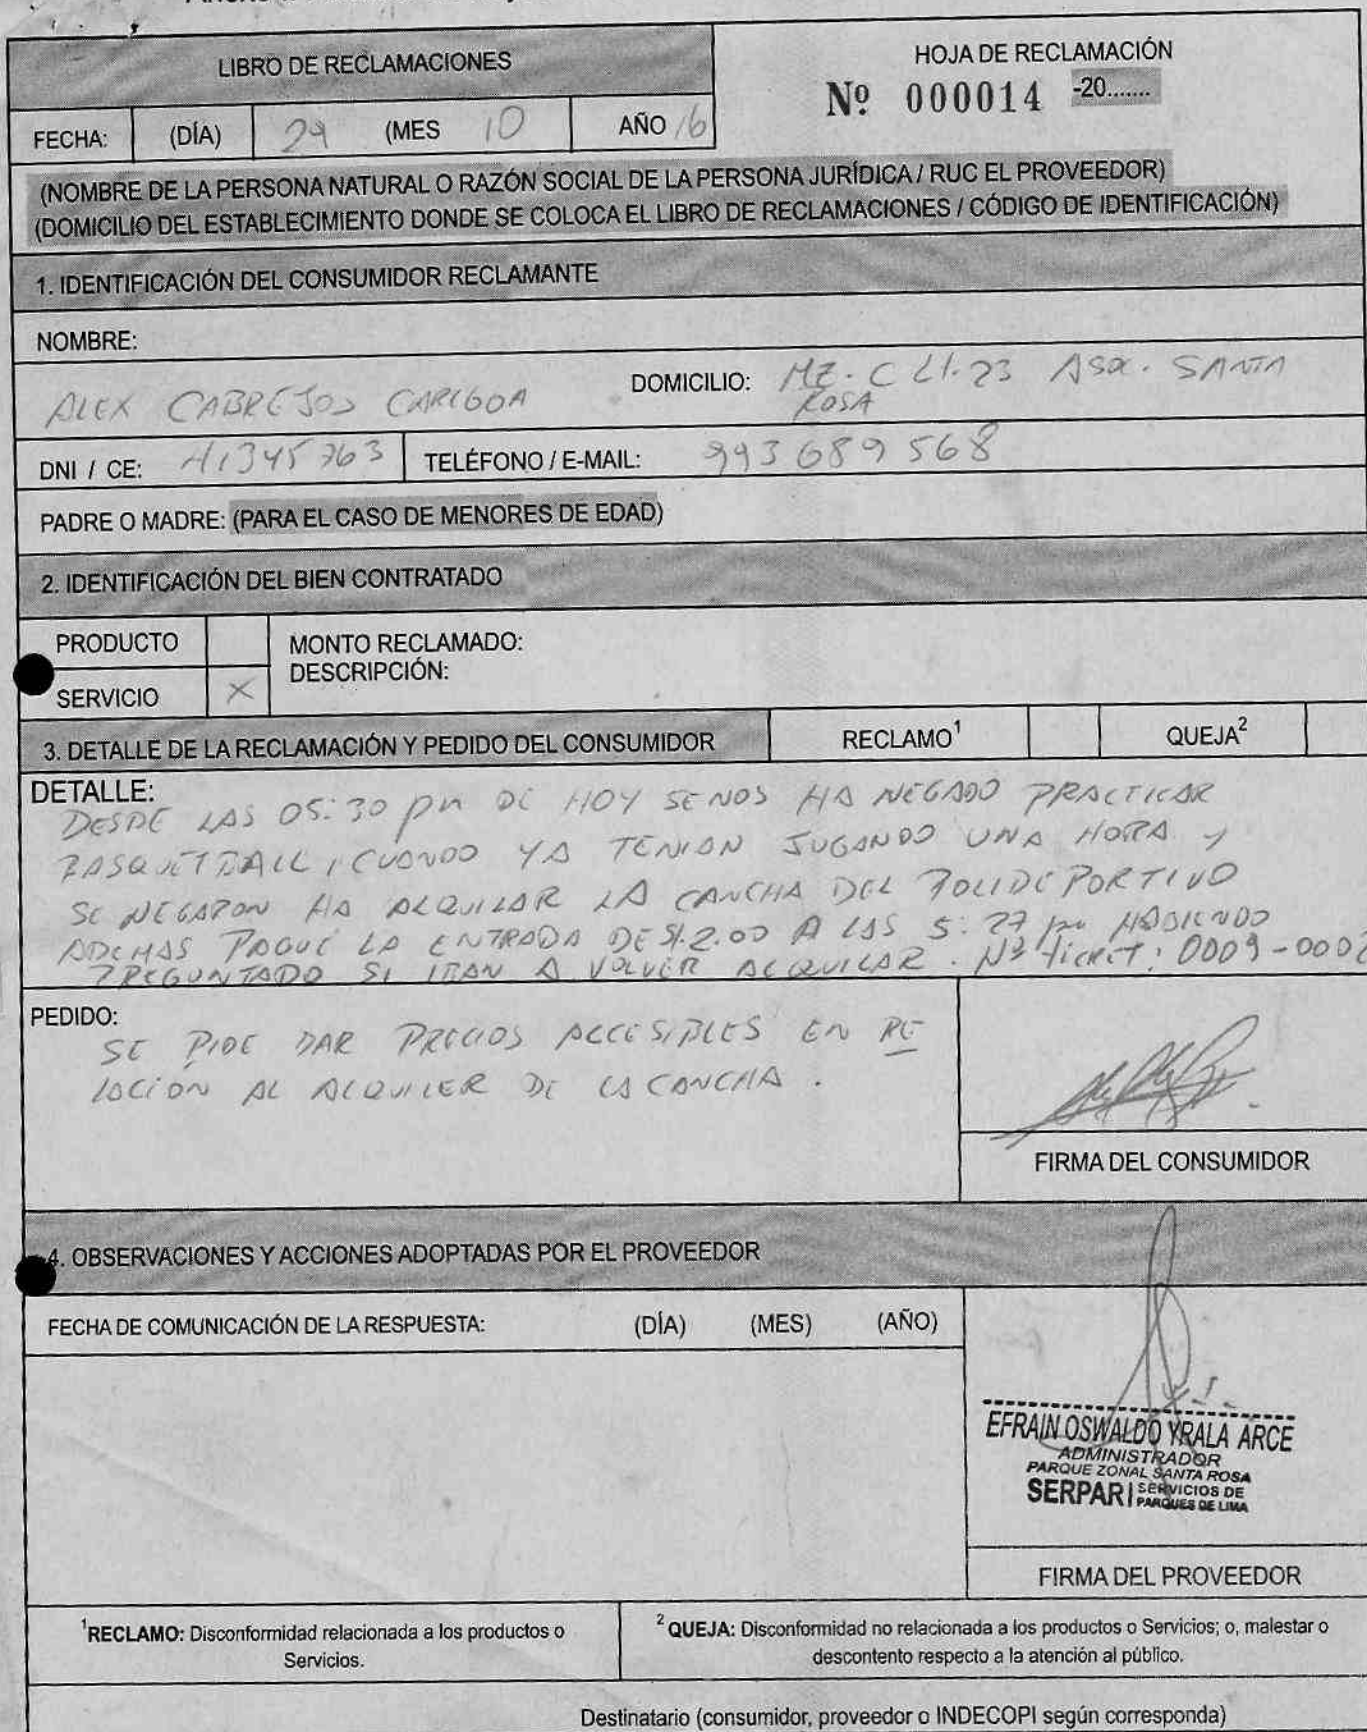 LIBRO DE RECLAMACIONES
HOJA DE RECLAMACIÓN
Nº 000014 -20.......
FECHA: (DÍA) 29 (MES 10 AÑO 16
(NOMBRE DE LA PERSONA NATURAL O RAZÓN SOCIAL DE LA PERSONA JURÍDICA / RUC EL PROVEEDOR)
(DOMICILIO DEL ESTABLECIMIENTO DONDE SE COLOCA EL LIBRO DE RECLAMACIONES / CÓDIGO DE IDENTIFICACIÓN)
1. IDENTIFICACIÓN DEL CONSUMIDOR RECLAMANTE
NOMBRE:
ALEX CABREJOS DOMICILIO: MZ. C Lt. 23 SANTA
ROSA
DNI / CE: 41345763 TELÉFONO / E-MAIL: 993689568
PADRE O MADRE: (PARA EL CASO DE MENORES DE EDAD)
2. IDENTIFICACIÓN DEL BIEN CONTRATADO
PRODUCTO
MONTO RECLAMADO:
DESCRIPCIÓN:
SERVICIO X
3. DETALLE DE LA RECLAMACIÓN Y PEDIDO DEL CONSUMIDOR RECLAMO¹ QUEJA²
DETALLE:
DESDE LAS 05:30 pm DE HOY SE NOS HA NEGADO PRACTICAR
BASQUETBALL, CUANDO YA TENIAN JUGANDO UNA HORA Y
SE NEGARON HA ALQUILAR LA CANCHA DEL POLIDEPORTIVO
ADEMAS PAGUE LA ENTRADA DE S/.2.00 A LAS 5:27 pm HABIENDO
PREGUNTADO SI IBAN A VOLVER ALQUILAR. Nº Ticket: 0009-000
PEDIDO:
SE PIDE DAR PRECIOS ACCESIBLES EN RE
LACIÓN AL ALQUILER DE LA CANCHA.
FIRMA DEL CONSUMIDOR
4. OBSERVACIONES Y ACCIONES ADOPTADAS POR EL PROVEEDOR
FECHA DE COMUNICACIÓN DE LA RESPUESTA: (DÍA) (MES) (AÑO)
EFRAIN OSWALDO YRALA ARCE
ADMINISTRADOR
PARQUE ZONAL SANTA ROSA
SERPAR | SERVICIOS DE
PARQUES DE LIMA
FIRMA DEL PROVEEDOR
¹RECLAMO: Disconformidad relacionada a los productos o
Servicios.
² QUEJA: Disconformidad no relacionada a los productos o Servicios; o, malestar o
descontento respecto a la atención al público.
Destinatario (consumidor, proveedor o INDECOPI según corresponda)